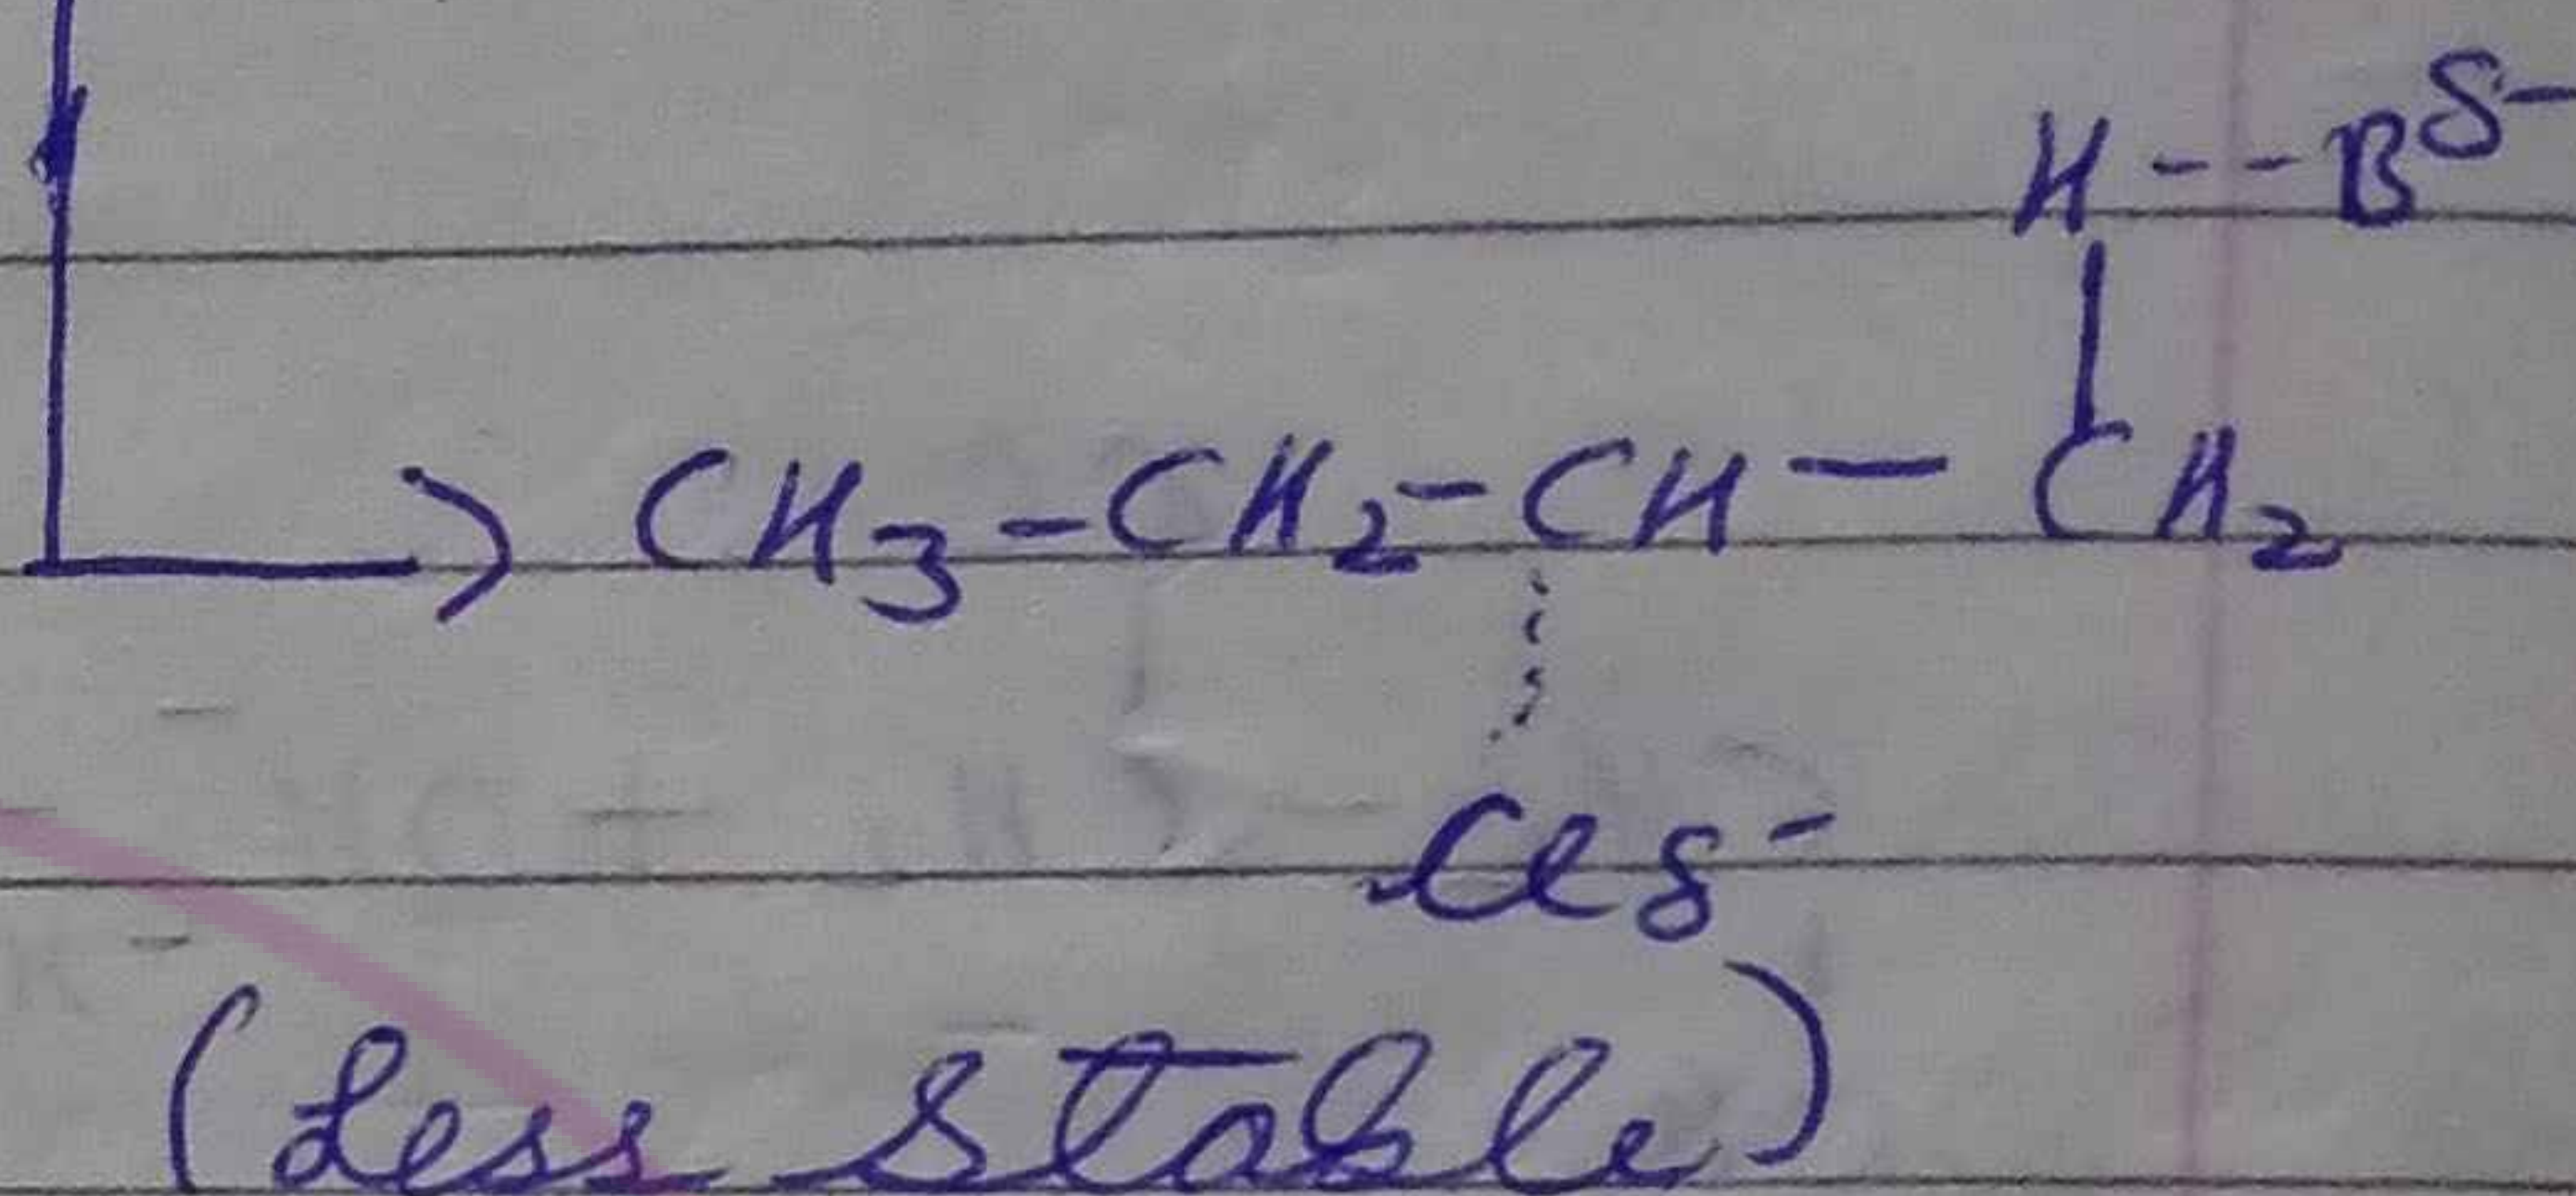 H---B^δ-
|
CH₃-CH₂-CH—CH₂
Cl δ-
(Less stable)